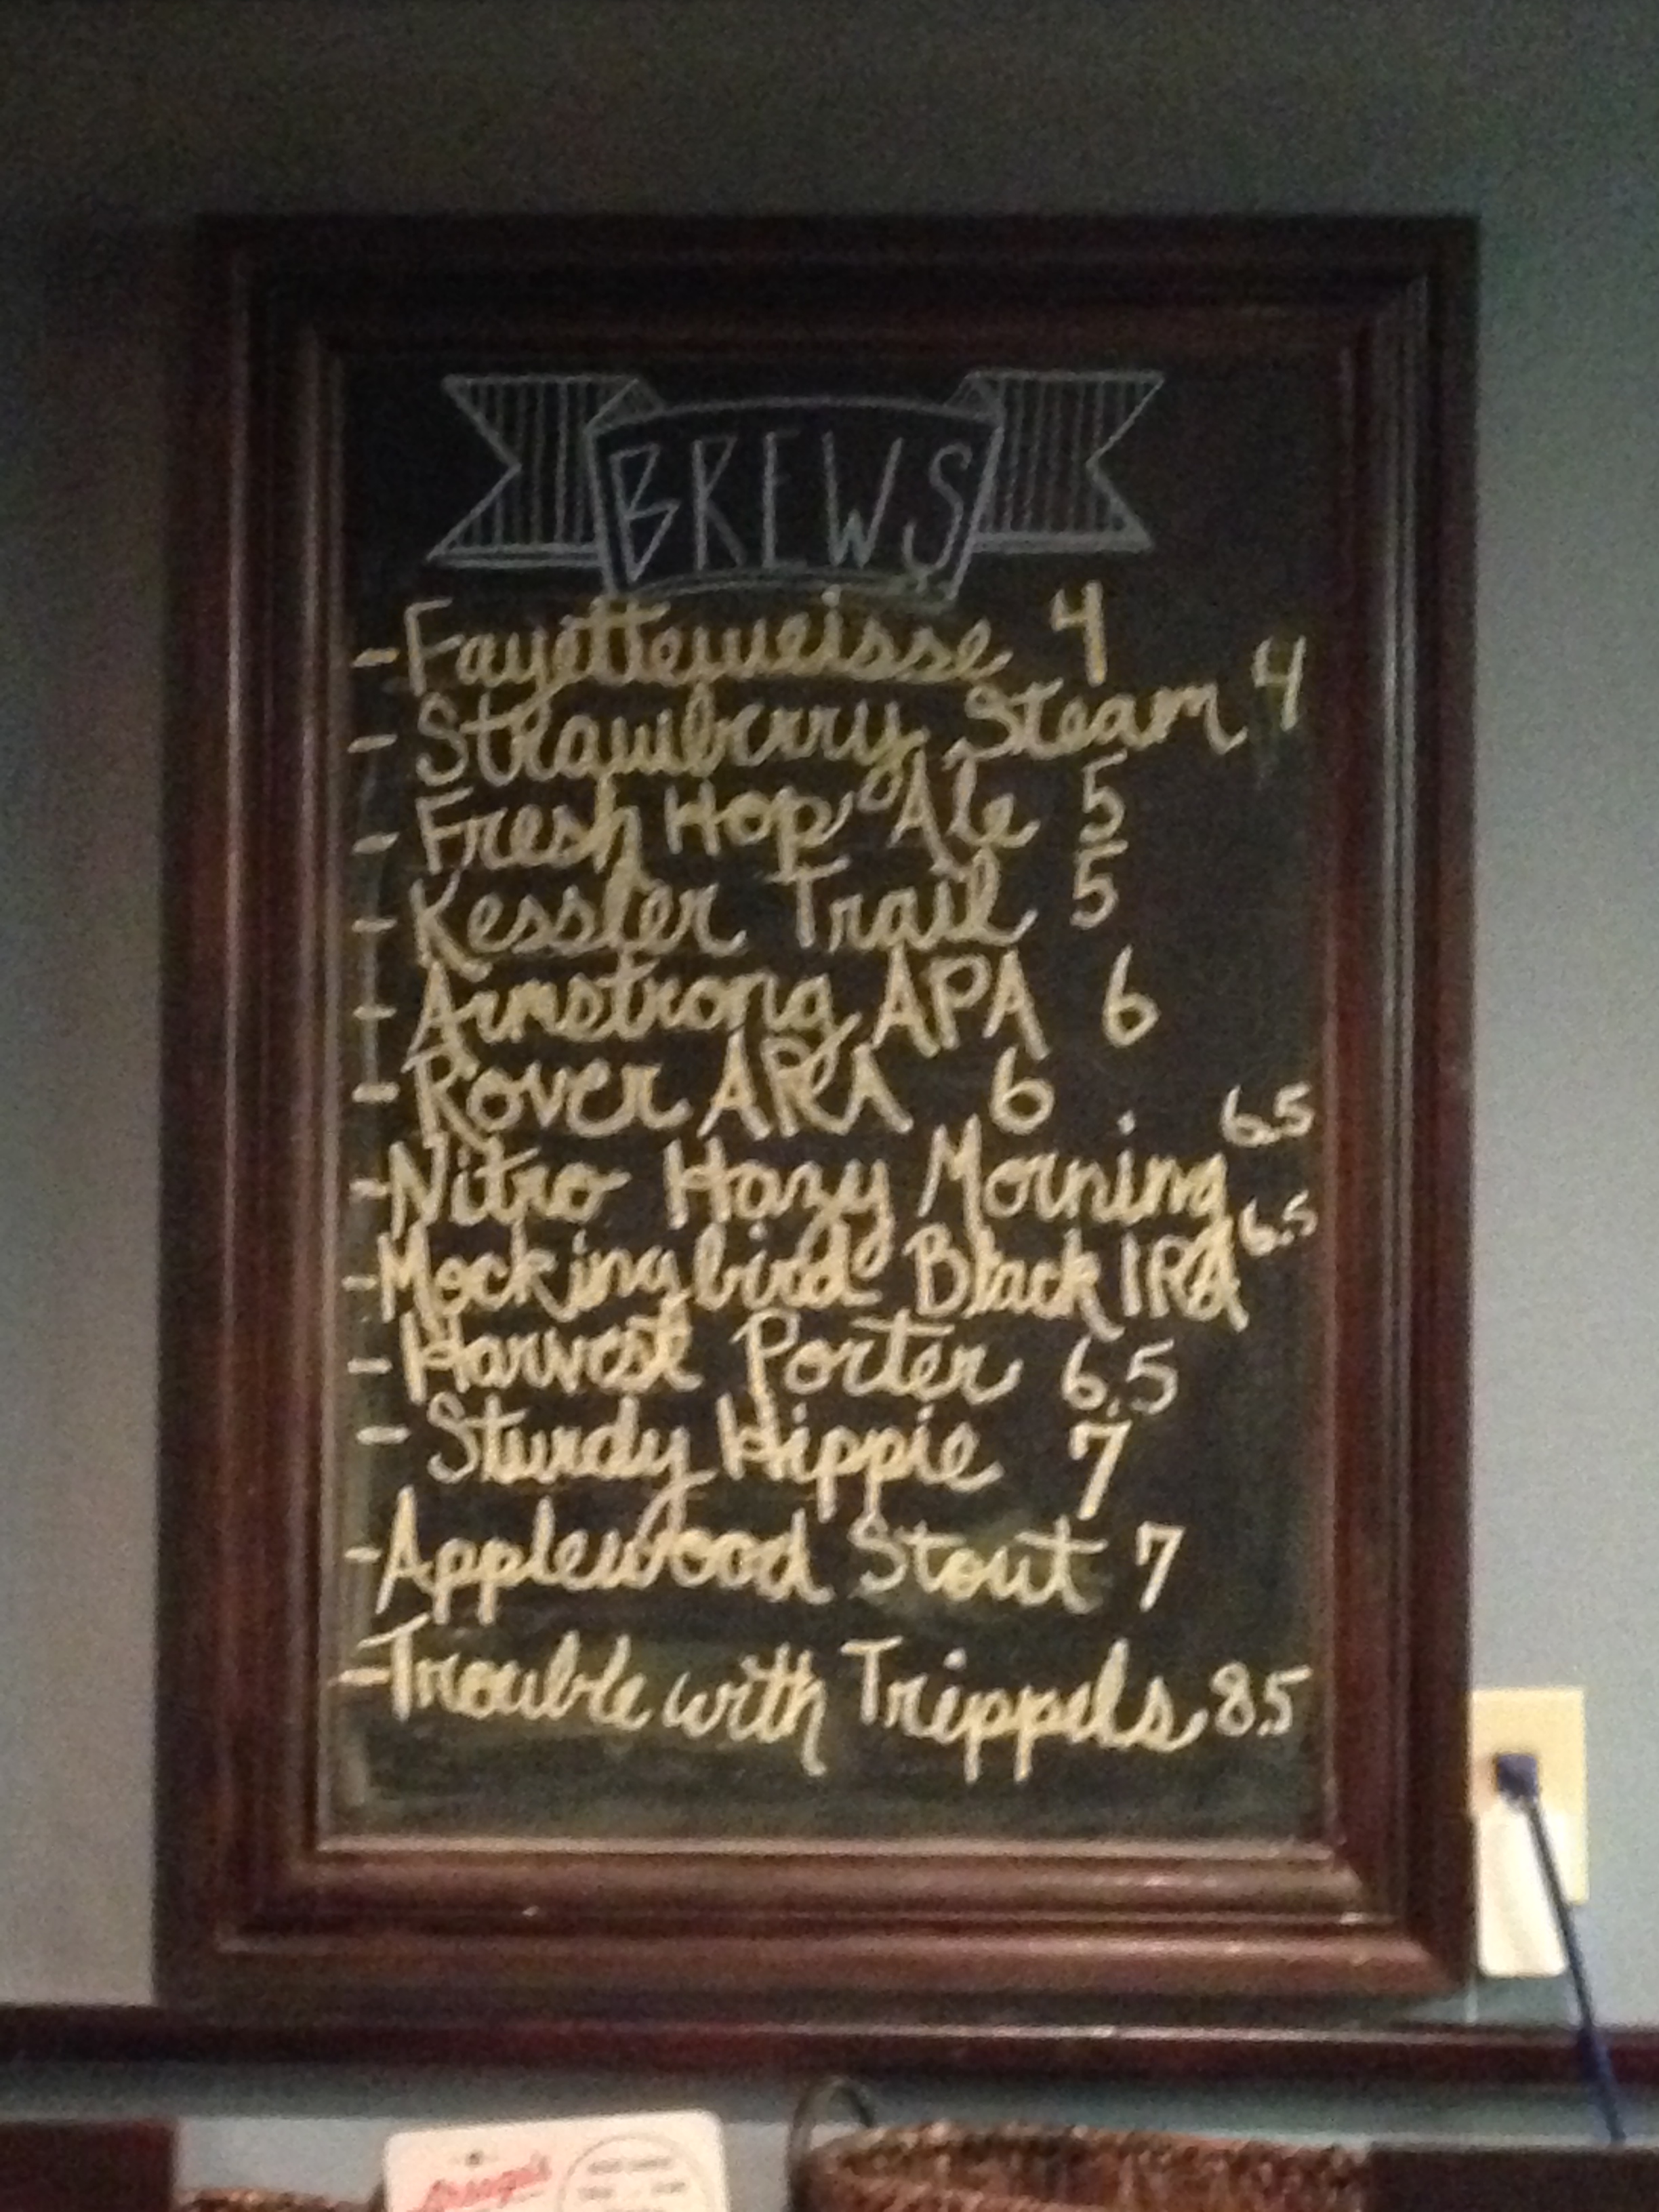 BREWS
- Fayetteweisse 4
- Strawberry Steam 4
- Fresh Hop Ale 5
- Kessler Trail 5
- Armstrong APA 6
- Rover ARA 6
- Nitro Hazy Morning 6.5
- Mockingbird Black IPA 6.5
- Harvest Porter 6.5
- Sturdy Hippie 7
- Applewood Stout 7
- Trouble with Trippels 8.5